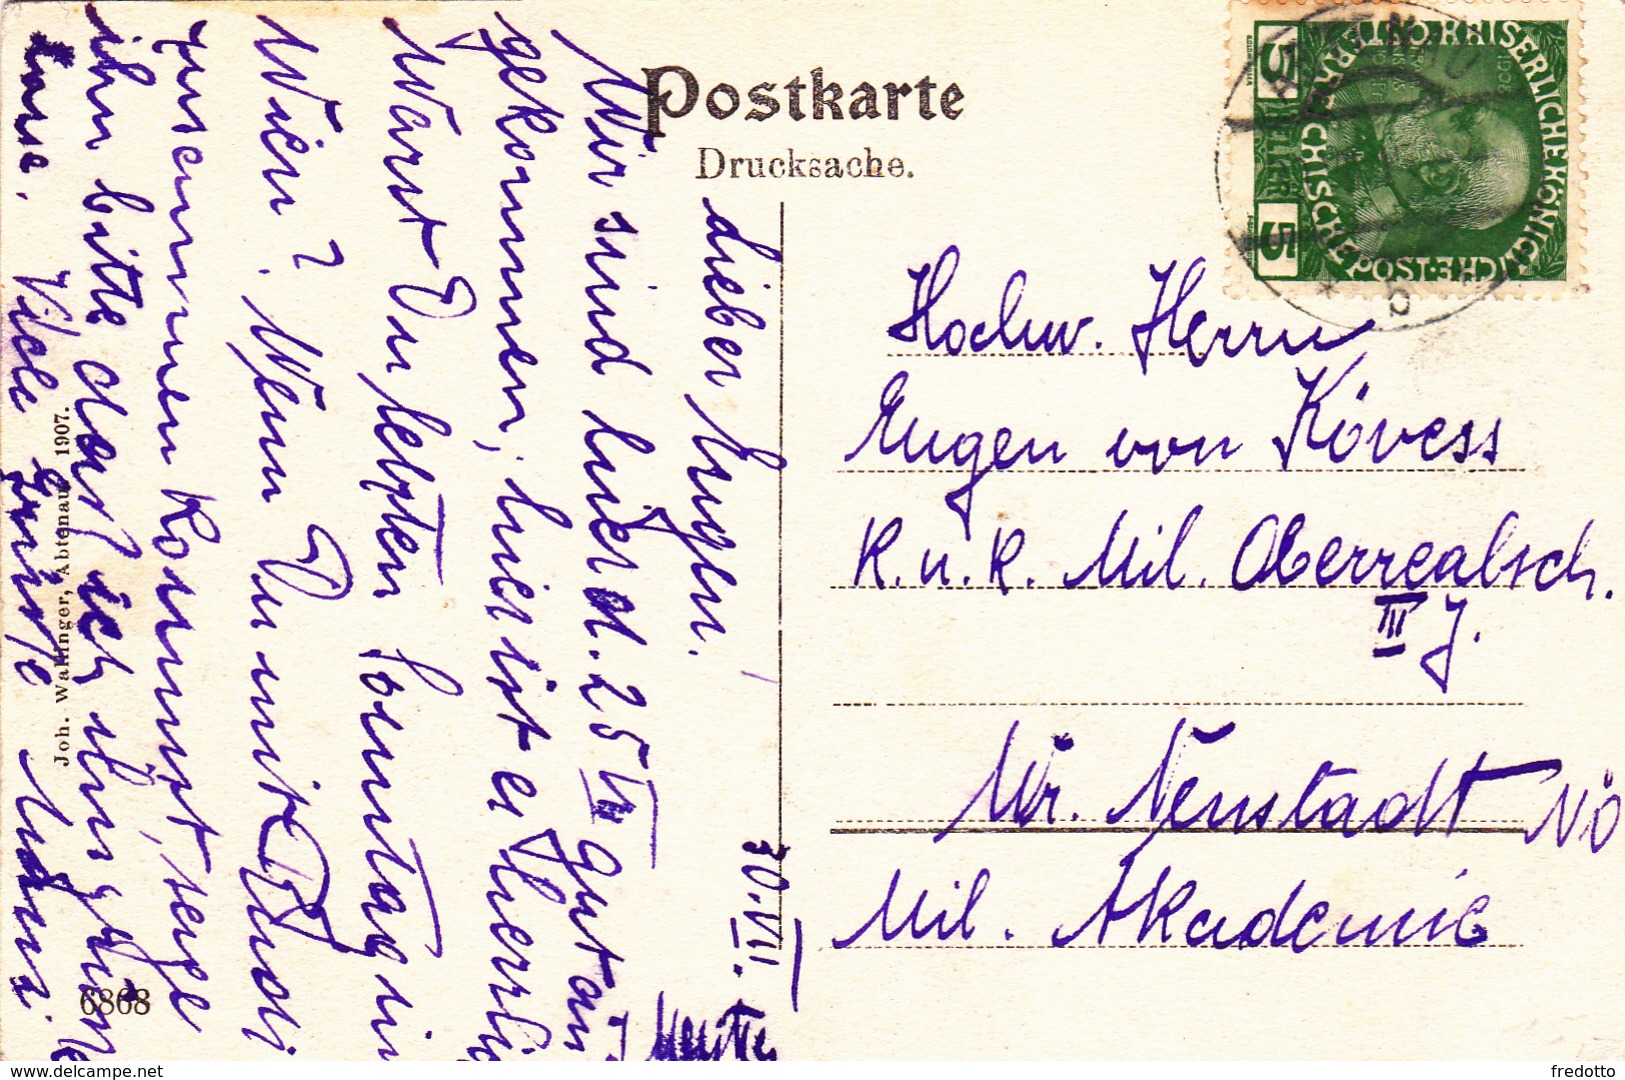 Postkarte
Drucksache.
30. VII.
Lieber Eugen.
Wir sind hier d. 25ten gut an
gekommen, hier ist es herrlich
Warst Du letzten Sonntag in
Wien? Wenn Du mit Rudi
zusammen kommst, sage
ihm bitte daß ich ihm
Viele Grüße
Joh. Wallinger, Abtenau 1907.
6868
Hochw. Herrn
Eugen von Kövess
K. u. K. Mil. Oberrealsch.
III J.
Wr. Neustadt NÖ
Mil. Akademie
KAISERLICHE KÖNIGLICHE POST
ÖSTERREICHISCHE
5 HELLER 5
delcampe.net
fredotto